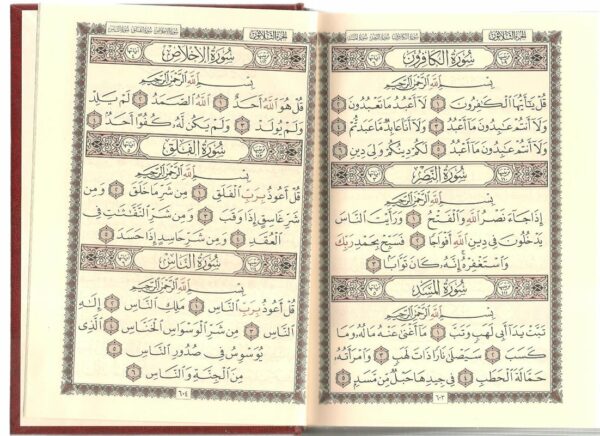 الجزء الثلاثون
سورة الكافرون
بِسْمِ ٱللَّهِ ٱلرَّحْمَٰنِ ٱلرَّحِيمِ
قُلْ يَٰٓأَيُّهَا ٱلْكَٰفِرُونَ ١ لَآ أَعْبُدُ مَا تَعْبُدُونَ ٢
وَلَآ أَنتُمْ عَٰبِدُونَ مَآ أَعْبُدُ ٣ وَلَآ أَنَا۠ عَابِدٌ مَّا عَبَدتُّمْ ٤
وَلَآ أَنتُمْ عَٰبِدُونَ مَآ أَعْبُدُ ٥ لَكُمْ دِينُكُمْ وَلِىَ دِينِ ٦
سورة النصر
بِسْمِ ٱللَّهِ ٱلرَّحْمَٰنِ ٱلرَّحِيمِ
إِذَا جَآءَ نَصْرُ ٱللَّهِ وَٱلْفَتْحُ ١ وَرَأَيْتَ ٱلنَّاسَ
يَدْخُلُونَ فِى دِينِ ٱللَّهِ أَفْوَاجًا ٢ فَسَبِّحْ بِحَمْدِ رَبِّكَ
وَٱسْتَغْفِرْهُ إِنَّهُۥ كَانَ تَوَّابًۢا ٣
سورة المسد
بِسْمِ ٱللَّهِ ٱلرَّحْمَٰنِ ٱلرَّحِيمِ
تَبَّتْ يَدَآ أَبِى لَهَبٍ وَتَبَّ ١ مَآ أَغْنَىٰ عَنْهُ مَالُهُۥ وَمَا
كَسَبَ ٢ سَيَصْلَىٰ نَارًا ذَاتَ لَهَبٍ ٣ وَٱمْرَأَتُهُۥ
حَمَّالَةَ ٱلْحَطَبِ ٤ فِى جِيدِهَا حَبْلٌ مِّن مَّسَدٍۭ ٥
٦٠٣
الجزء الثلاثون
سورة الإخلاص
بِسْمِ ٱللَّهِ ٱلرَّحْمَٰنِ ٱلرَّحِيمِ
قُلْ هُوَ ٱللَّهُ أَحَدٌ ١ ٱللَّهُ ٱلصَّمَدُ ٢ لَمْ يَلِدْ
وَلَمْ يُولَدْ ٣ وَلَمْ يَكُن لَّهُۥ كُفُوًا أَحَدٌۢ ٤
سورة الفلق
بِسْمِ ٱللَّهِ ٱلرَّحْمَٰنِ ٱلرَّحِيمِ
قُلْ أَعُوذُ بِرَبِّ ٱلْفَلَقِ ١ مِن شَرِّ مَا خَلَقَ ٢ وَمِن
شَرِّ غَاسِقٍ إِذَا وَقَبَ ٣ وَمِن شَرِّ ٱلنَّفَّٰثَٰتِ فِى
ٱلْعُقَدِ ٤ وَمِن شَرِّ حَاسِدٍ إِذَا حَسَدَ ٥
سورة الناس
بِسْمِ ٱللَّهِ ٱلرَّحْمَٰنِ ٱلرَّحِيمِ
قُلْ أَعُوذُ بِرَبِّ ٱلنَّاسِ ١ مَلِكِ ٱلنَّاسِ ٢ إِلَٰهِ
ٱلنَّاسِ ٣ مِن شَرِّ ٱلْوَسْوَاسِ ٱلْخَنَّاسِ ٤ ٱلَّذِى
يُوَسْوِسُ فِى صُدُورِ ٱلنَّاسِ ٥
مِنَ ٱلْجِنَّةِ وَٱلنَّاسِ ٦
٦٠٤